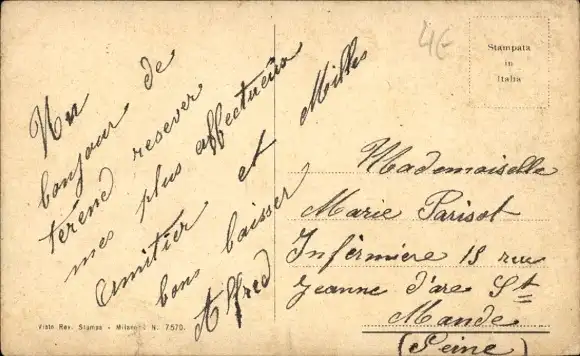 Un
bonjour de
térend resever
mes plus affectueux
amitier et Mille
bons baisser
Alfred
4€
Stampata
in
Italia
Mademoiselle
Marie Parisot
Infèrmiere 18 rue
Jeanne d'arc St
Mande
(Seine)
Visto Rev. Stampa - Milano N. 7570.